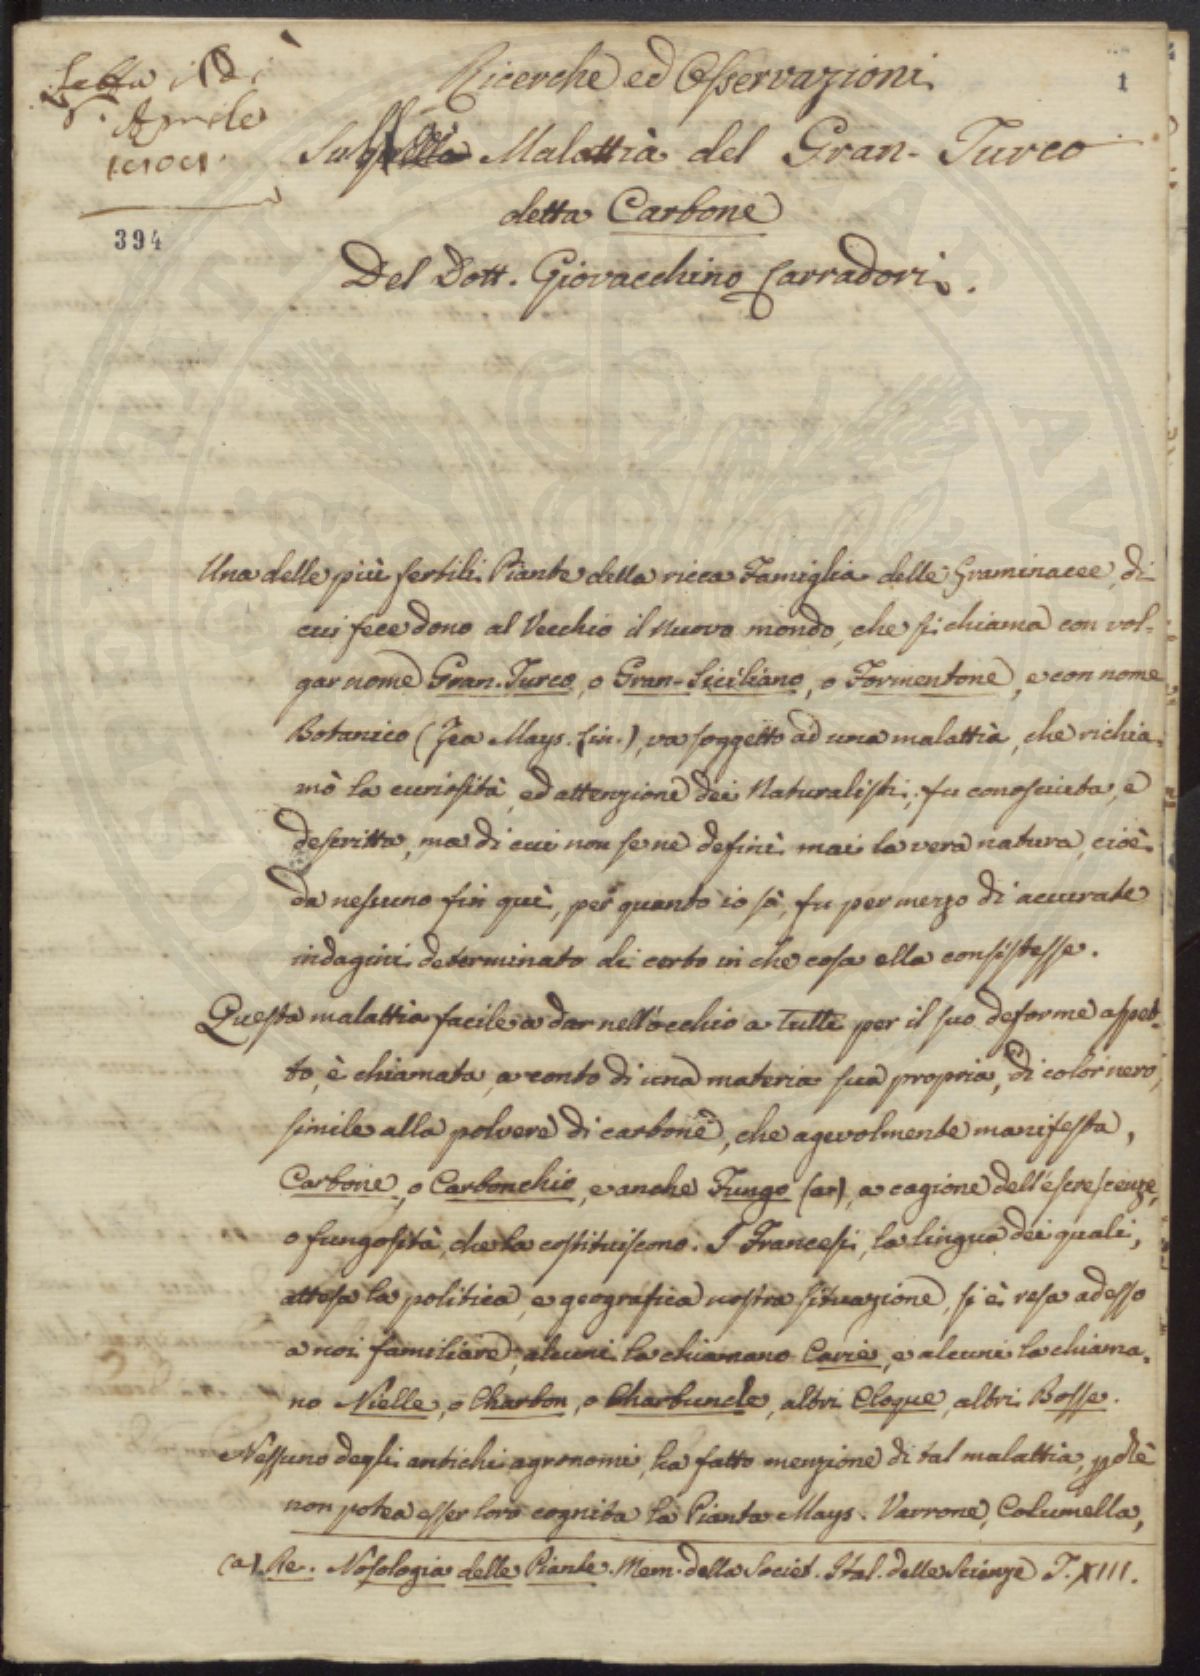 Letta il dì
5. Aprile
1809.
394
1
Ricerche ed Osservazioni
Sulla Malattìa del Gran-Turco
detta Carbone
Del Dott. Giovacchino Carradori.
Una delle più fertili Piante della ricca Famiglia delle Graminacee, di
cui fece dono al Vecchio il Nuovo mondo, che si chiama con vol-
gar nome Gran-Turco, o Gran-Siciliano, o Formentone, e con nome
Botanico (Zea Mays. Lin.), va soggetto ad una malattìa, che richia-
mò la curiosità, ed attenzione dei Naturalisti; fu conosciuta, e
descritta, ma di cui non se ne definì mai la vera natura, cioè
da nessuno fin quì, per quanto io sò, fu per mezzo di accurate
indagini determinato di certo in che cosa ella consistesse.
Questa malattìa facile a dar nell'occhio a tutti per il suo deforme aspet-
to, è chiamata, a conto di una materia sua propria, di color nero,
simile alla polvere di carbone, che agevolmente manifesta,
Carbone, o Carbonchio, e anche Fungo (a), a cagione dell'escrescenze,
o fungosità, che la costituiscono. I Francesi, la lingua dei quali,
attesa la politica, e geografica nostra situazione, si è resa adesso
a noi familiare, alcuni la chiamano Carie, e alcuni la chiama-
no Nielle, o Charbon, o Charbuncle, altri Cloque, altri Bosse.
Nessuno degli antichi agronomi, ha fatto menzione di tal malattìa,
non potea esser loro cognita la Pianta Mays. Varrone, Columella,
(a) Re. Nosologia delle Piante. Mem. della Societ. Ital. delle Scienze T. XIII.